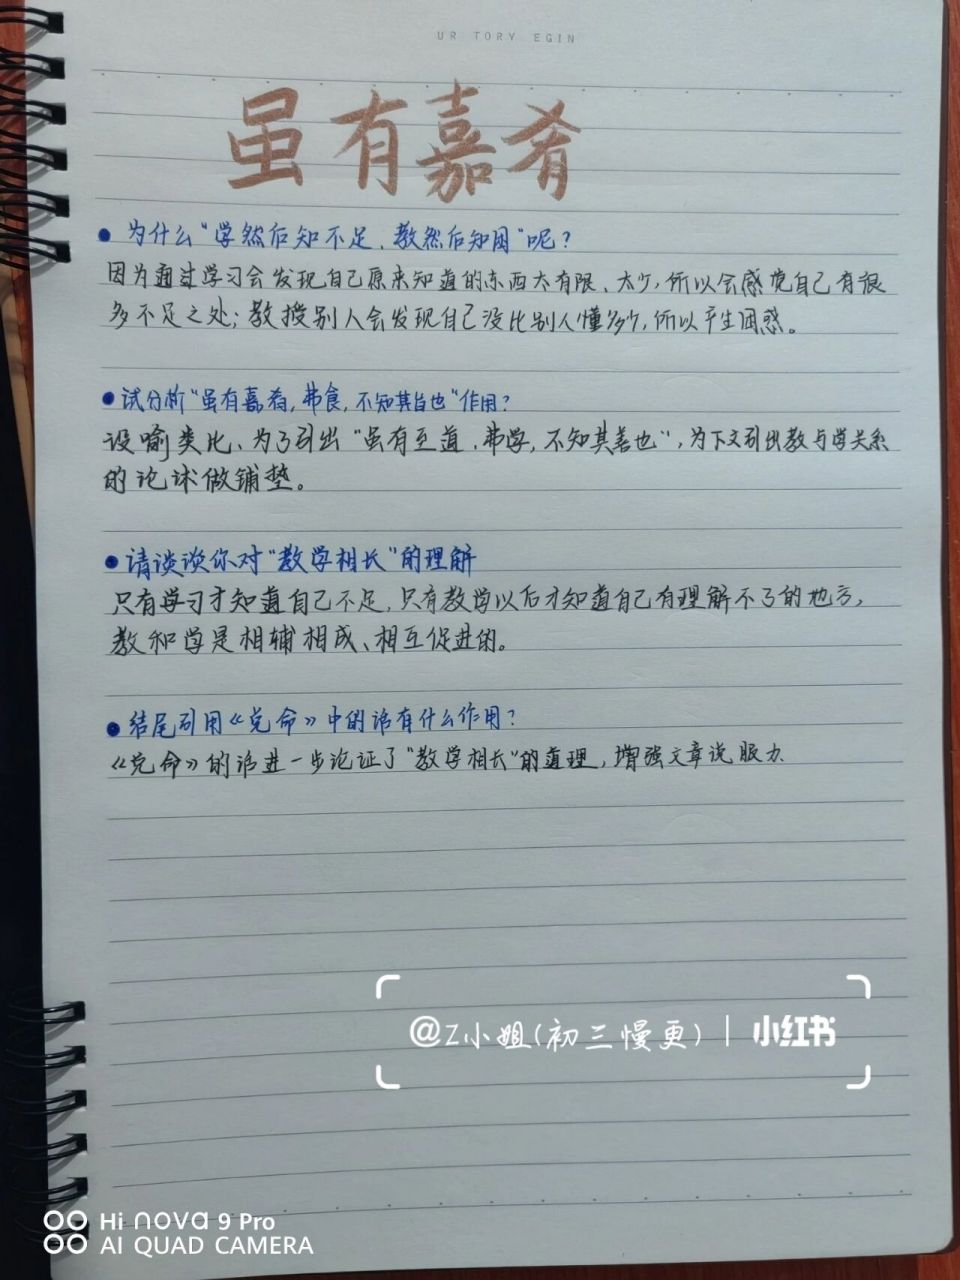 UR TORY EGIN
虽有嘉肴
●为什么"学然后知不足,教然后知困"呢?
因为通过学习会发现自己原来知道的东西太有限、太少,所以会感觉自己有很
多不足之处;教授别人会发现自己没比别人懂多少,所以产生困惑。
●试分析"虽有嘉肴,弗食,不知其旨也"作用?
设喻类比、为了引出"虽有至道,弗学,不知其善也",为下文引出教与学关系
的论述做铺垫。
●请谈谈你对"教学相长"的理解
只有学习才知道自己不足,只有教学以后才知道自己有理解不了的地方,
教和学是相辅相成、相互促进的。
●结尾引用《兑命》中的话有什么作用?
《兑命》的话进一步论证了"教学相长"的道理,增强文章说服力
@Z小姐(初三慢更) | 小红书
Hi nova 9 Pro
AI QUAD CAMERA